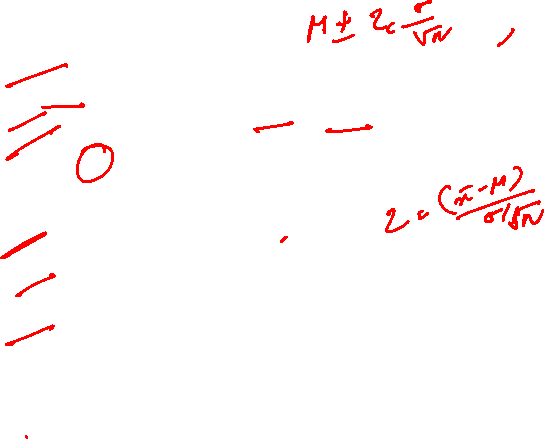 μ ± z_c σ/√N ,
z = (x̄ - μ)/(σ/√N)